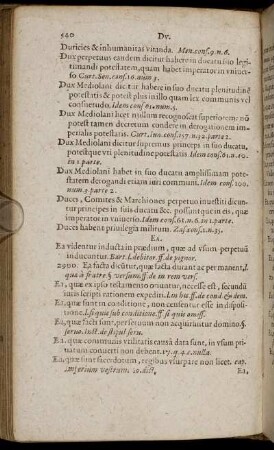 540 Du.
Durities & inhumanitas vitanda. Men. cons. 9. n. 6.
Dux perpetuus eandem dicitur habere in ducatu suo legi
timandi potestatem, quam habet imperator in vniuer
so Curt. Sen. cons. 10. num. 3.
Dux Mediolani dicitur habere in suo ducatu plenitudinē
potestatis & potest plus in illo quam lex communis vel
consuetudo. Idem cons. 61. num. 5.
Dux Mediolani licet nullum recognoscat superiorem: nō
potest tamen decretum condere in derogationem im
perialis potestatis. Curt. Iun. cons. 157. n. 32. parte 2.
Dux Mediolani dicitur supremus princeps in suo ducatu,
potestque vti plenitudine potestatis Idem cons. 61. n. 10.
in 1. parte.
Dux Mediolani habet in suo ducatu amplissimam potes
tatem derogandi etiam iuri communi. Idem cons. 100.
num. 4. parte 2.
Duces, Comites & Marchiones perpetuo inuestiti dicun
tur principes in suis ducatu &c. possuntque in eis, quæ
imperator in vniuerso. Idem cons. 61. n. 6. in 1. parte.
Duces habent priuilegia militum. Zas. cons. 1. n. 35.
Ea.
Ea videntur inducta in prædium, quæ ad vsum perpetuū
inducuntur. Bart. l. debitor. ff. de pignor.
2900. Ea facta dicūtur, quæ facta durant ac permanent, l.
qua à fratre §. versum. ff. de in rem vers.
Ea, quæ ex ipso testamento oriuntur, necesse est, secundū
iuris scripti rationem expediri. Lin hu. ff. de cond. & dem.
Ea, quæ sunt in conditione, non censentur esse in dispo
tione. l. si quis sub conditione. ff. si quis omiss.
Ea, quæ facti sunt, per seruum non acquiruntur domino §.
seruo. Inst. de stipul. seru.
Ea, quæ communis vtilitatis causa data sunt, in vsum pri
uatum conuerti non debent. 17. q. 4. c. nulla.
Ea, quæ sunt sacerdotum, regibus vsurpare non licet. cap.
imperium vestrum. 10. dist.
Ea,